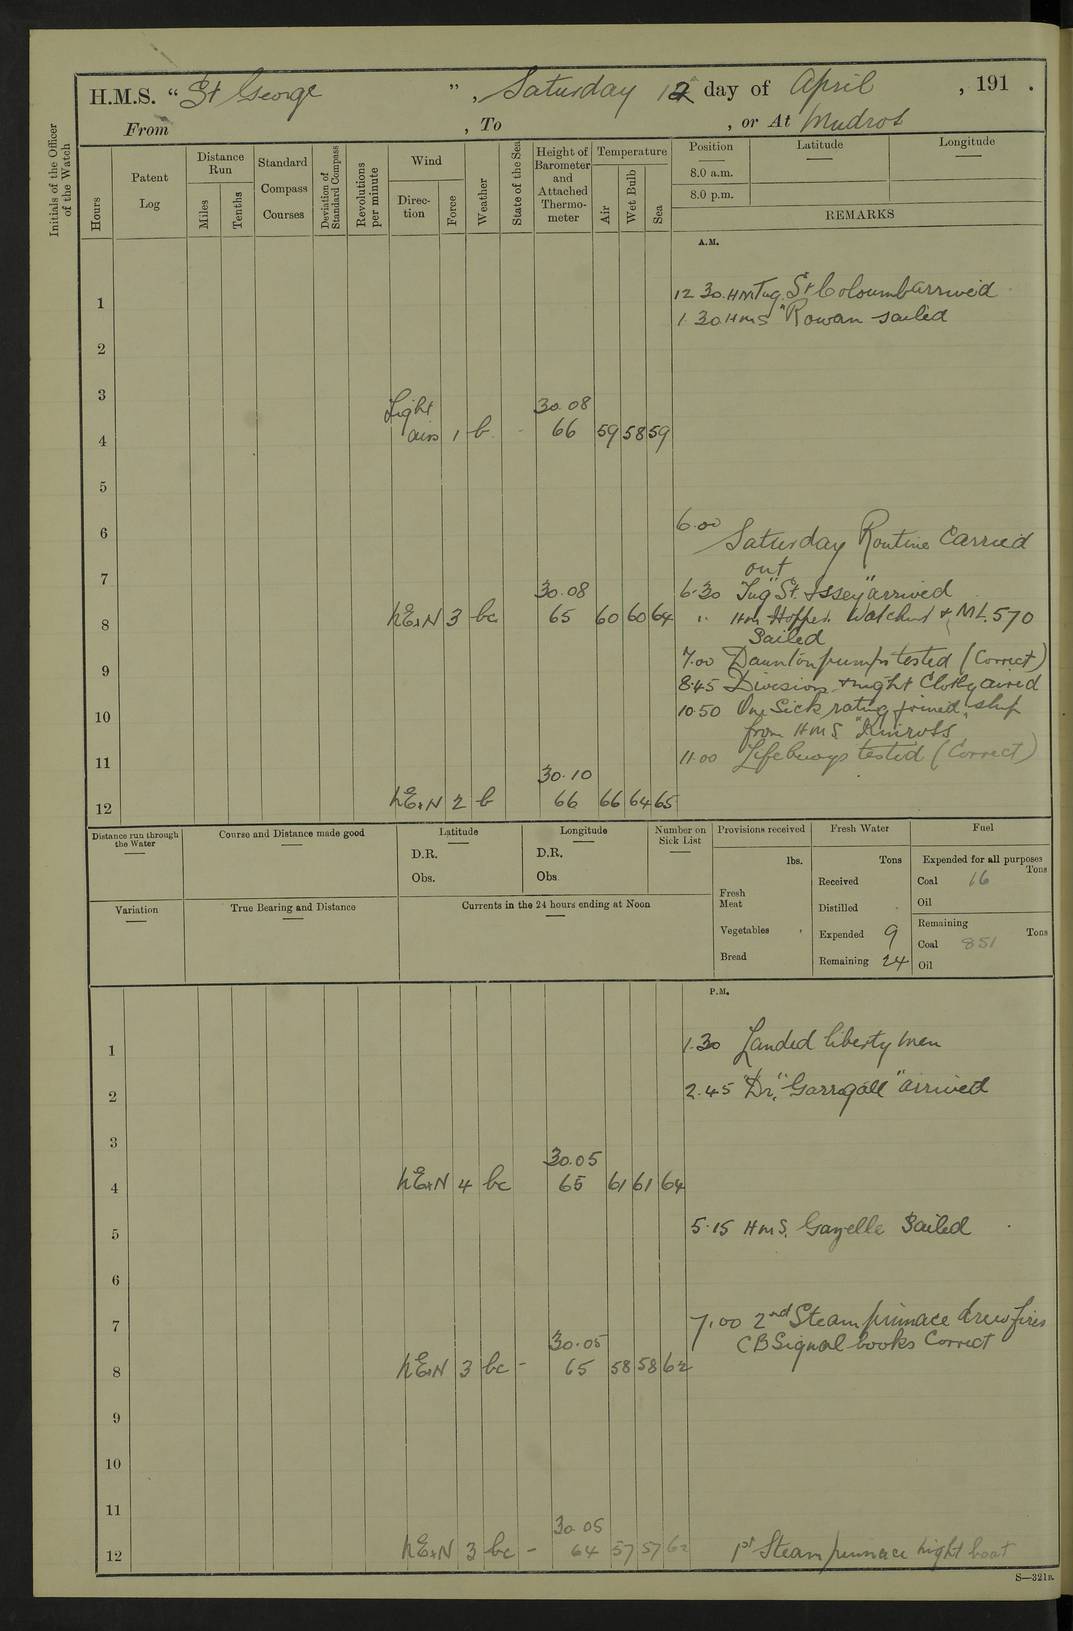 H.M.S. "St George", Saturday 12 day of April, 191 .
From , To , or At Mudros
Initials of the Officer of the Watch
Hours
Patent Log
Distance Run
Miles
Tenths
Standard Compass Courses
Deviation of Standard Compass
Revolutions per minute
Wind
Direction
Force
Weather
State of the Sea
Height of Barometer and Attached Thermometer
Temperature
Air
Wet Bulb
Sea
Position
8.0 a.m.
8.0 p.m.
Latitude
Longitude
REMARKS
A.M.
1
12 30. HM Tug. St Coloumb arrived
1. 30 HMS "Rowan sailed
2
3
Light 30.08
4 airs 1 b - 66 59 58 59
5
6
6.00 Saturday Routine Carried
out
7 30.08
6.30 Tug "St. Issey" arrived
8 NE×N 3 bc 65 60 60 64
" HM Hopper Watchful & ML. 570
Sailed
9
7.00 Daunton pumps tested (Correct)
8.45 Divisions & night Clothg aired
10
10.50 One Sick rating joined ship
from HMS "Kinross"
11
11.00 Lifebuoys tested (Correct)
30.10
12 NE×N 2 b 66 66 64 65
Distance run through the Water
Course and Distance made good
Latitude
D.R.
Obs.
Longitude
D.R.
Obs.
Number on Sick List
Provisions received
lbs.
Fresh Meat
Vegetables
Bread
Fresh Water
Tons
Received
Distilled
Expended 9
Remaining 24
Fuel
Expended for all purposes
Tons
Coal 16
Oil
Remaining
Tons
Coal 851
Oil
Variation
True Bearing and Distance
Currents in the 24 hours ending at Noon
P.M.
1
1.30 Landed liberty men
2
2.45 "Dr," "Garrogall" arrived
3
30.05
4 NE×N 4 bc 65 61 61 64
5
5.15 HMS. Gazelle Sailed
6
7
7.00 2nd Steam pinnace drew fires
CB Signal books Correct
30.05
8 NE×N 3 bc - 65 58 58 62
9
10
11
30.05
12 NE×N 3 bc - 64 57 57 62
1st Steam pinnace night boat
S—321B.